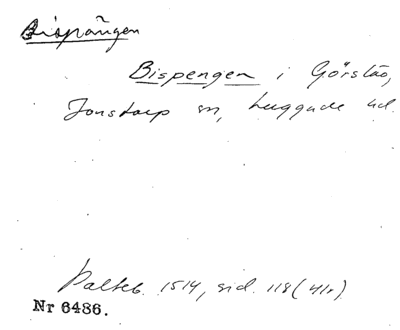 Bispängen
Bispengen i Görslöv,
Jonstorp sn, Luggude hd.
Palteb. 1514, sid. 118 (41r)
Nr 6486.